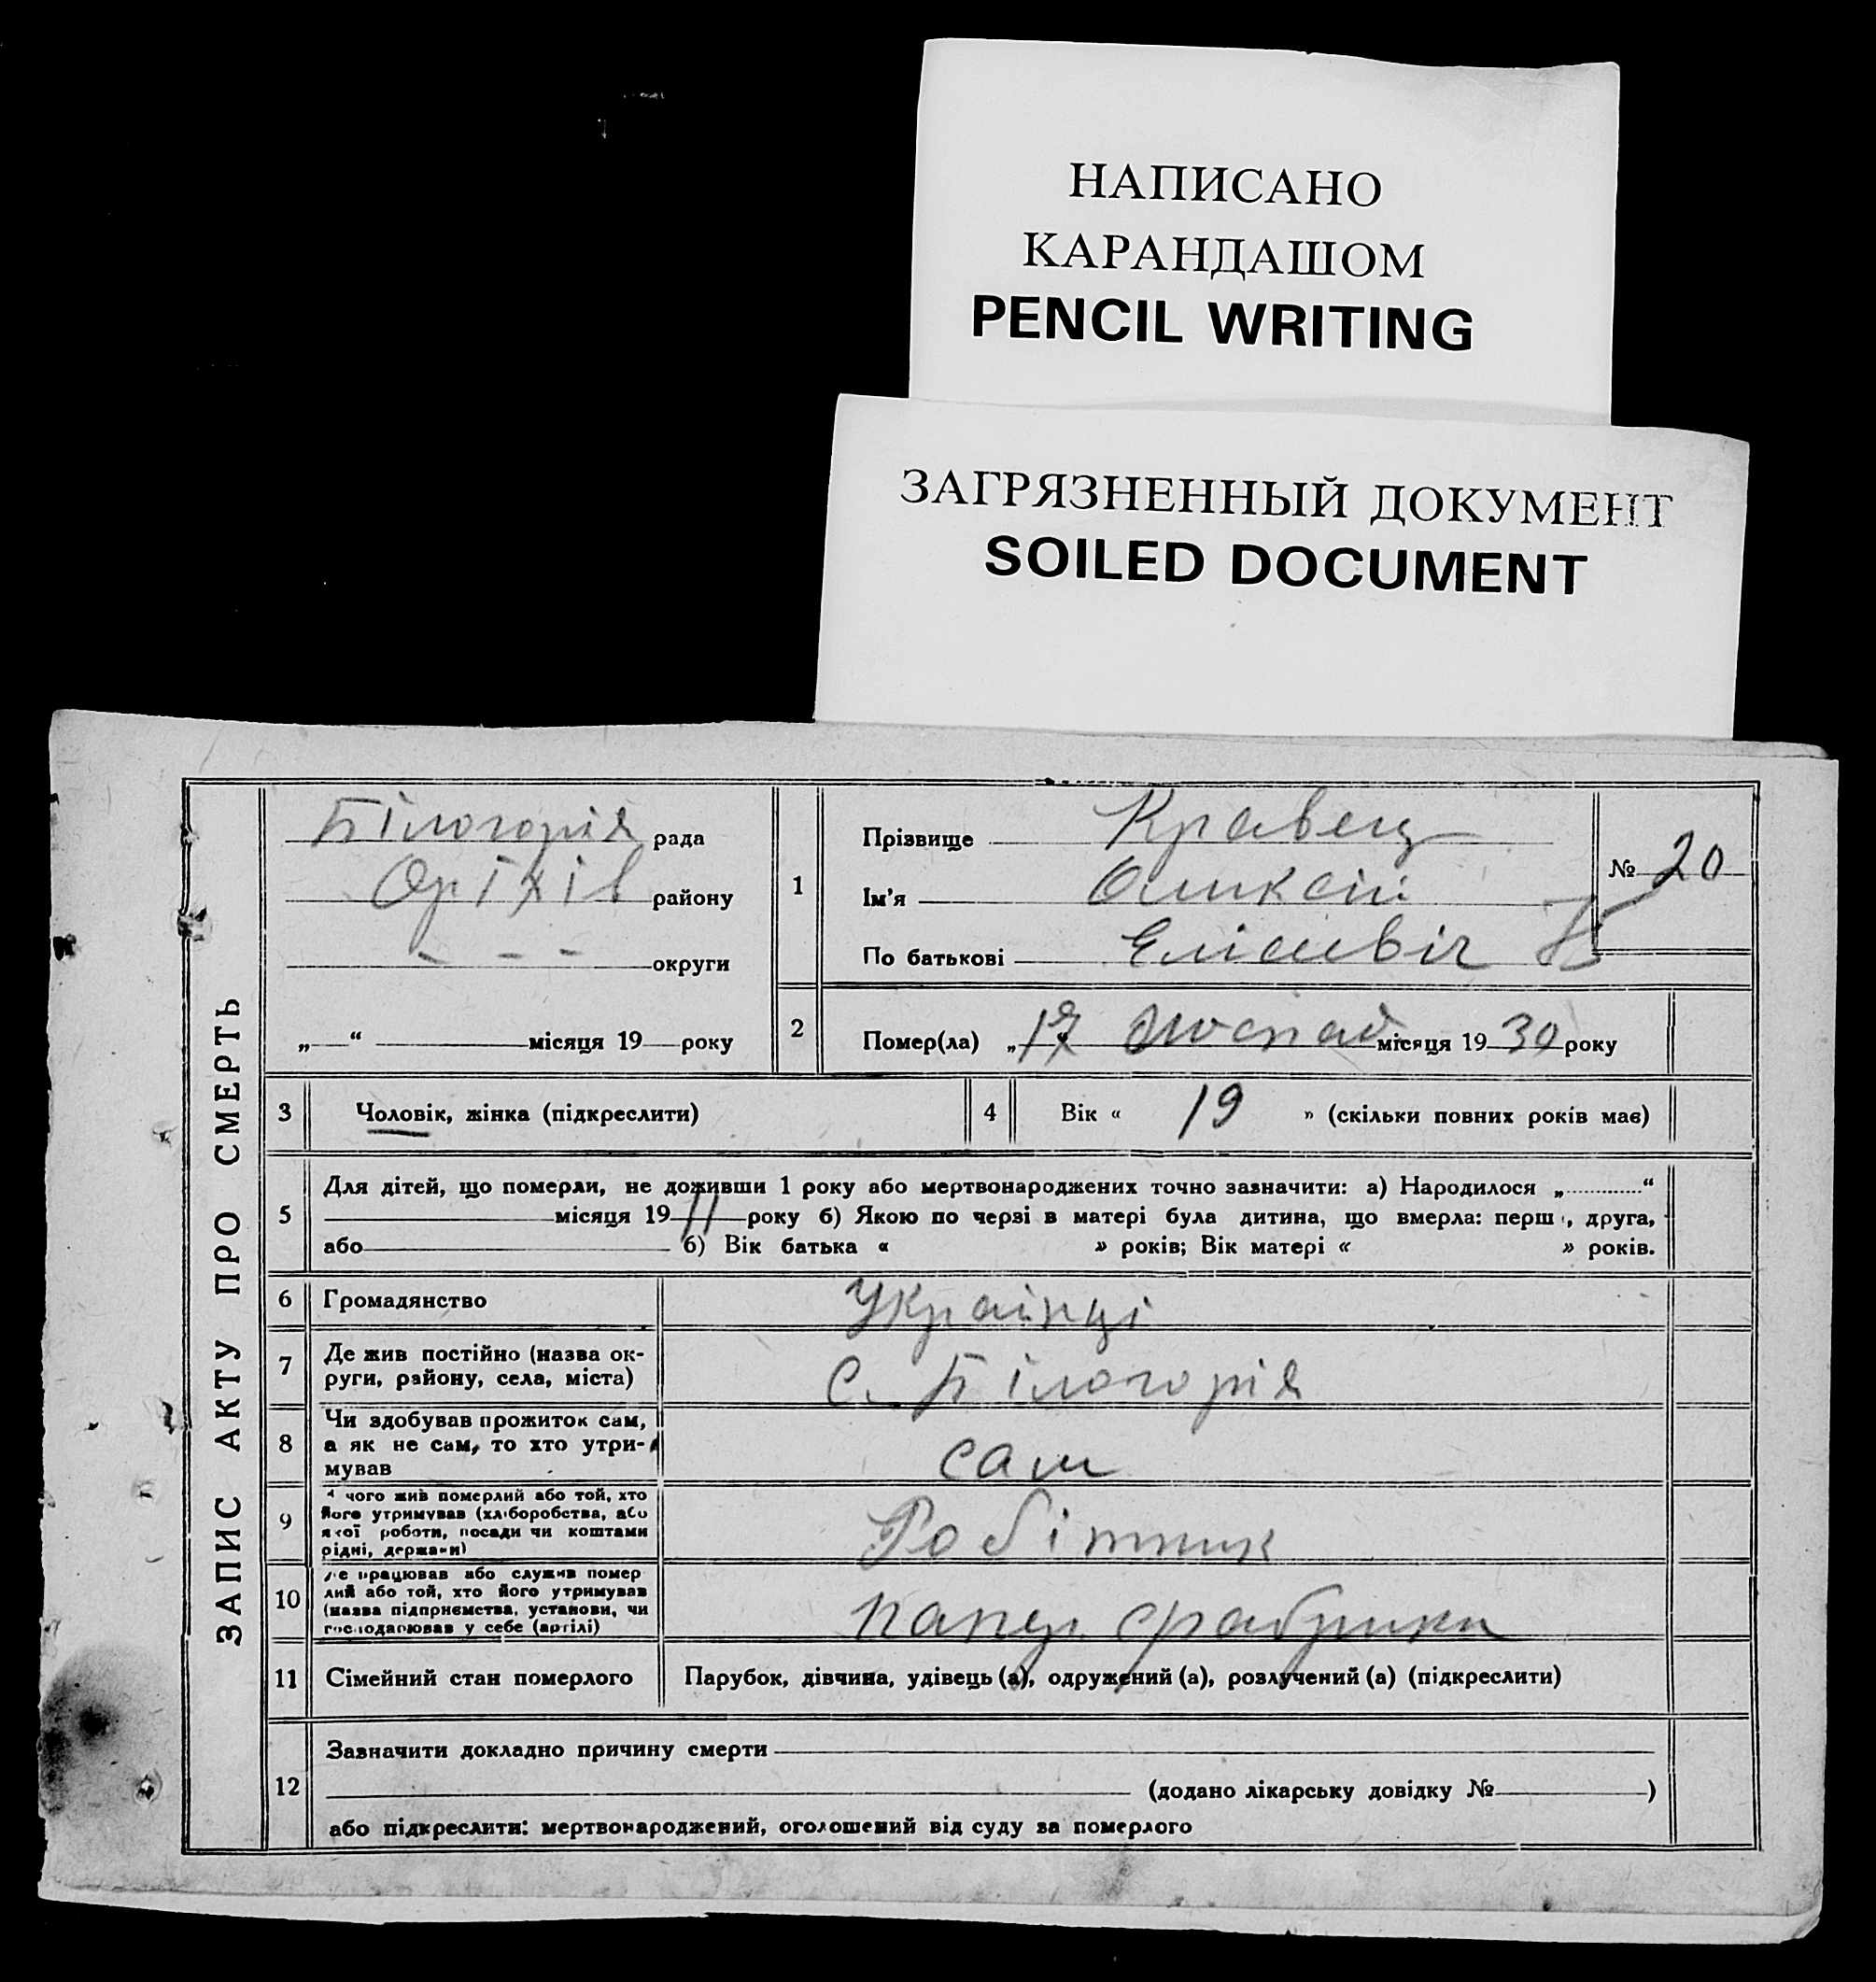 НАПИСАНО
КАРАНДАШОМ
PENCIL WRITING
ЗАГРЯЗНЕННЫЙ ДОКУМЕНТ
SOILED DOCUMENT
ЗАПИС АКТУ ПРО СМЕРТЬ
Білогорія рада
Оріхів району
- - - округи
„ “ місяця 19 року
1
Прізвище Кравец
Ім'я Оликсій
По батькові
№ 20
2
Помер(ла) „ місяця 1930 року
3 Чоловік, жінка (підкреслити)
4 Вік « 19 » (скільки повних років має)
5 Для дітей, що померли, не доживши 1 року або мертвонароджених точно зазначити: а) Народилося „ “
місяця 1911 року б) Якою по черзі в матері була дитина, що вмерла: перш , друга,
або б) Вік батька « » років; Вік матері « » років.
6 Громадянство Українці
7 Де жив постійно (назва ок-
руги, району, села, міста) С. Білогорія
8 Чи здобував прожиток сам,
а як не сам, то хто утри-
мував сам
9 чого жив померлий або той, хто
його утримував (хліборобства, або
якої роботи, посади чи коштами
рідні, держави) Робітник
10 Де працював або служив помер
лий або той, хто його утримував
(назва підприємства, установи, чи
господарював у себе (артілі) фабрики
11 Сімейний стан померлого Парубок, дівчина, удівець (а), одружений (а), розлучений (а) (підкреслити)
12 Зазначити докладно причину смерти
(додано лікарську довідку № )
або підкреслити: мертвонароджений, оголошений від суду за померлого